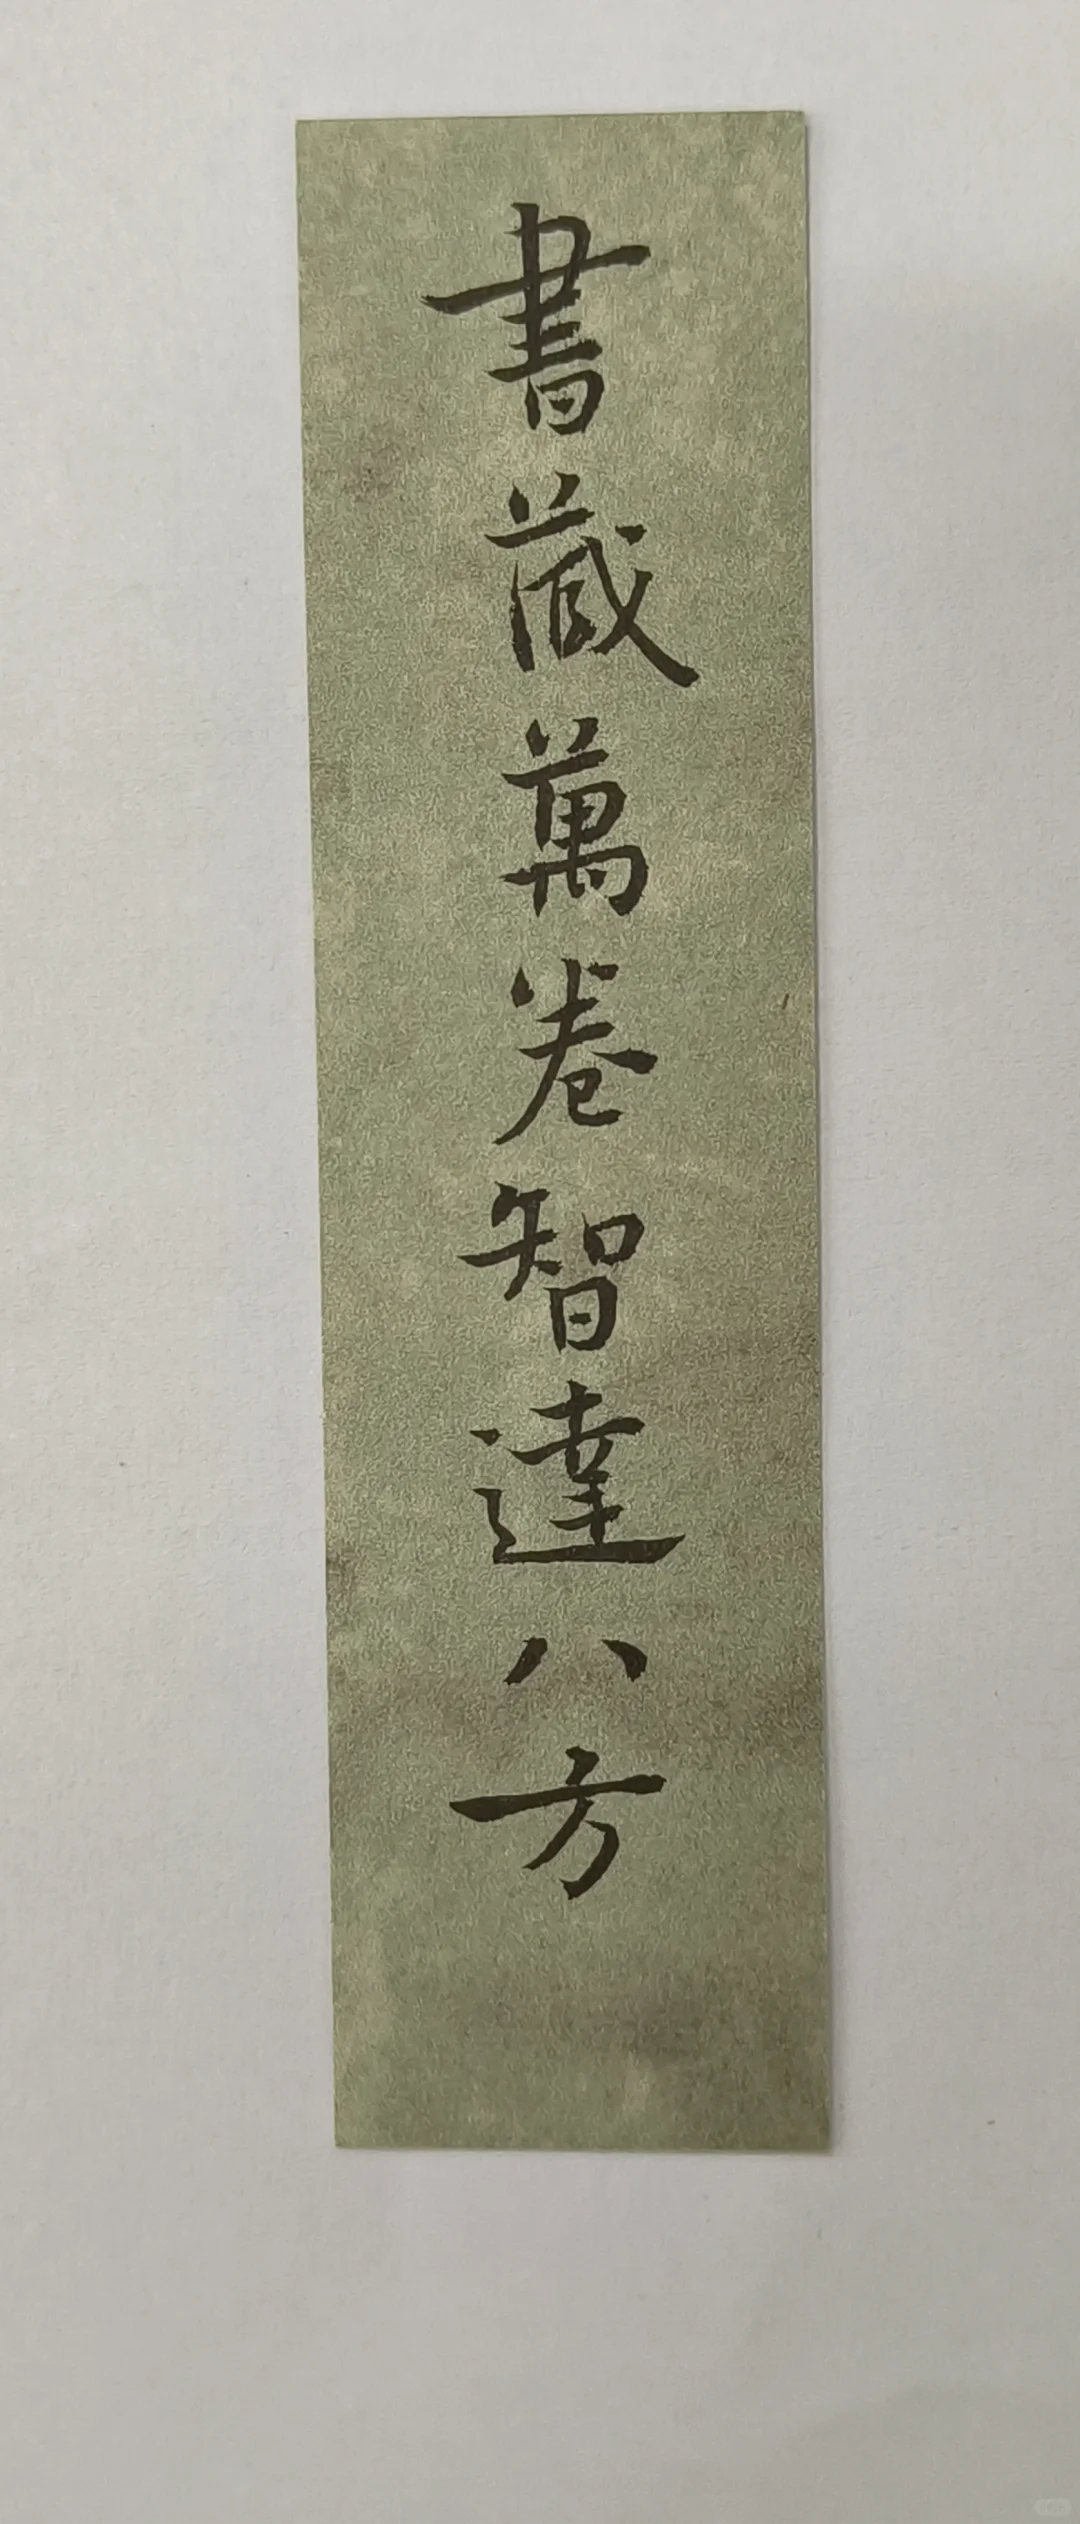 書藏萬卷智達八方